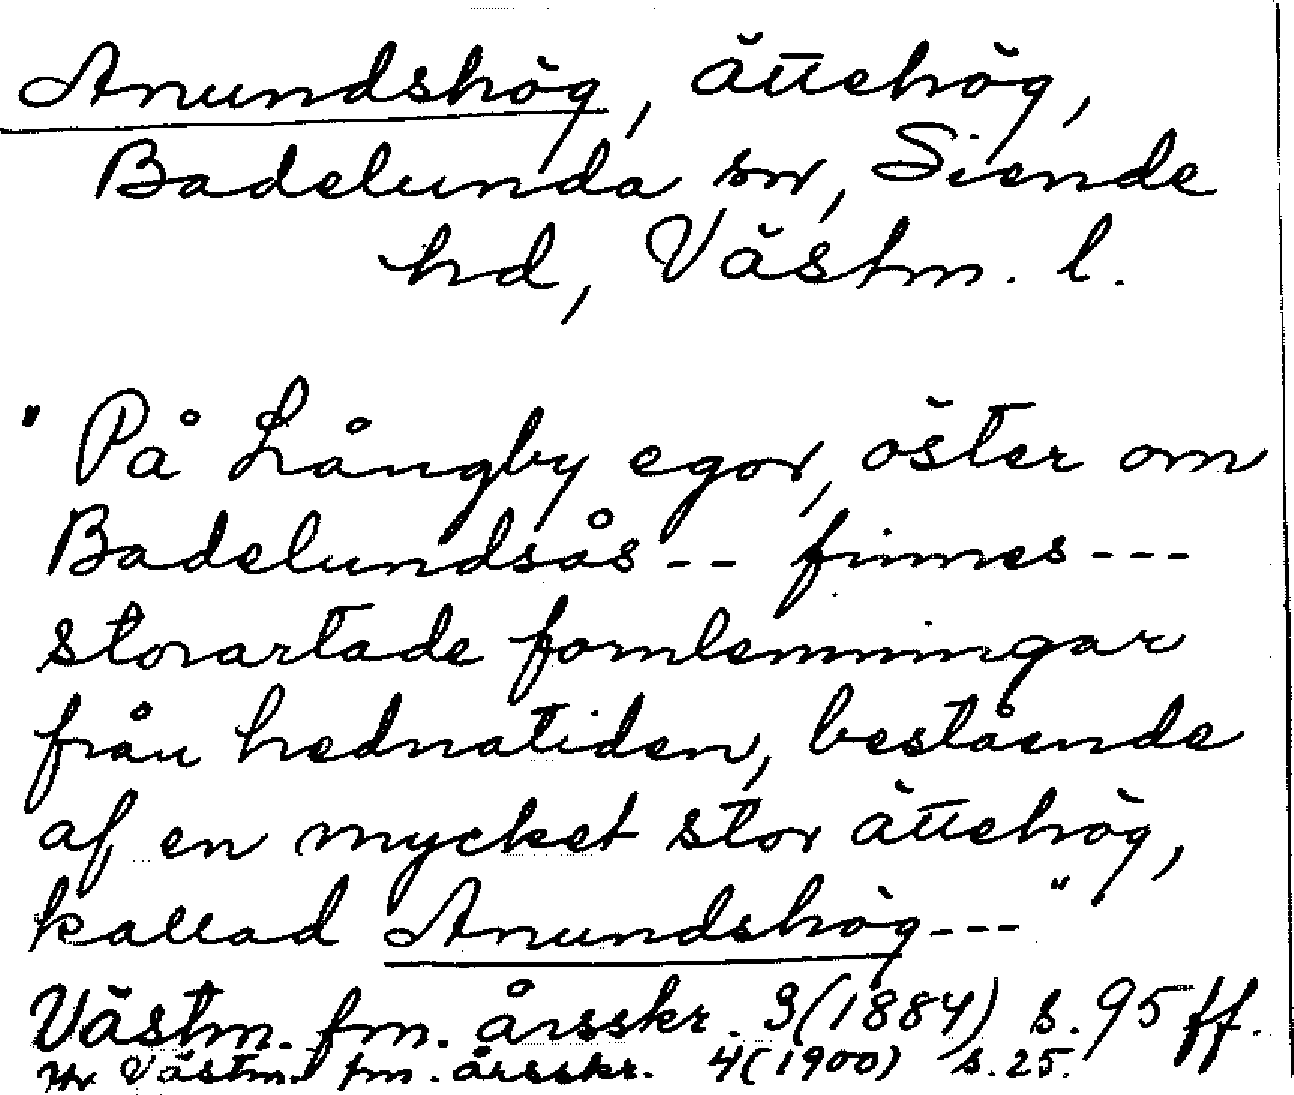 Anundshög, ättehög,
Badelunda sn, Siende
hd, Västm. l.
"På Långby egor, öster om
Badelundsås -- finnes ---
storartade fornlemningar
från hednatiden, bestående
af en mycket stor ättehög,
kallad Anundshög---"
Västm. fm. årsskr. 3(1884) s. 95 ff.
Västm. fm. årsskr. 4(1900) s. 25.